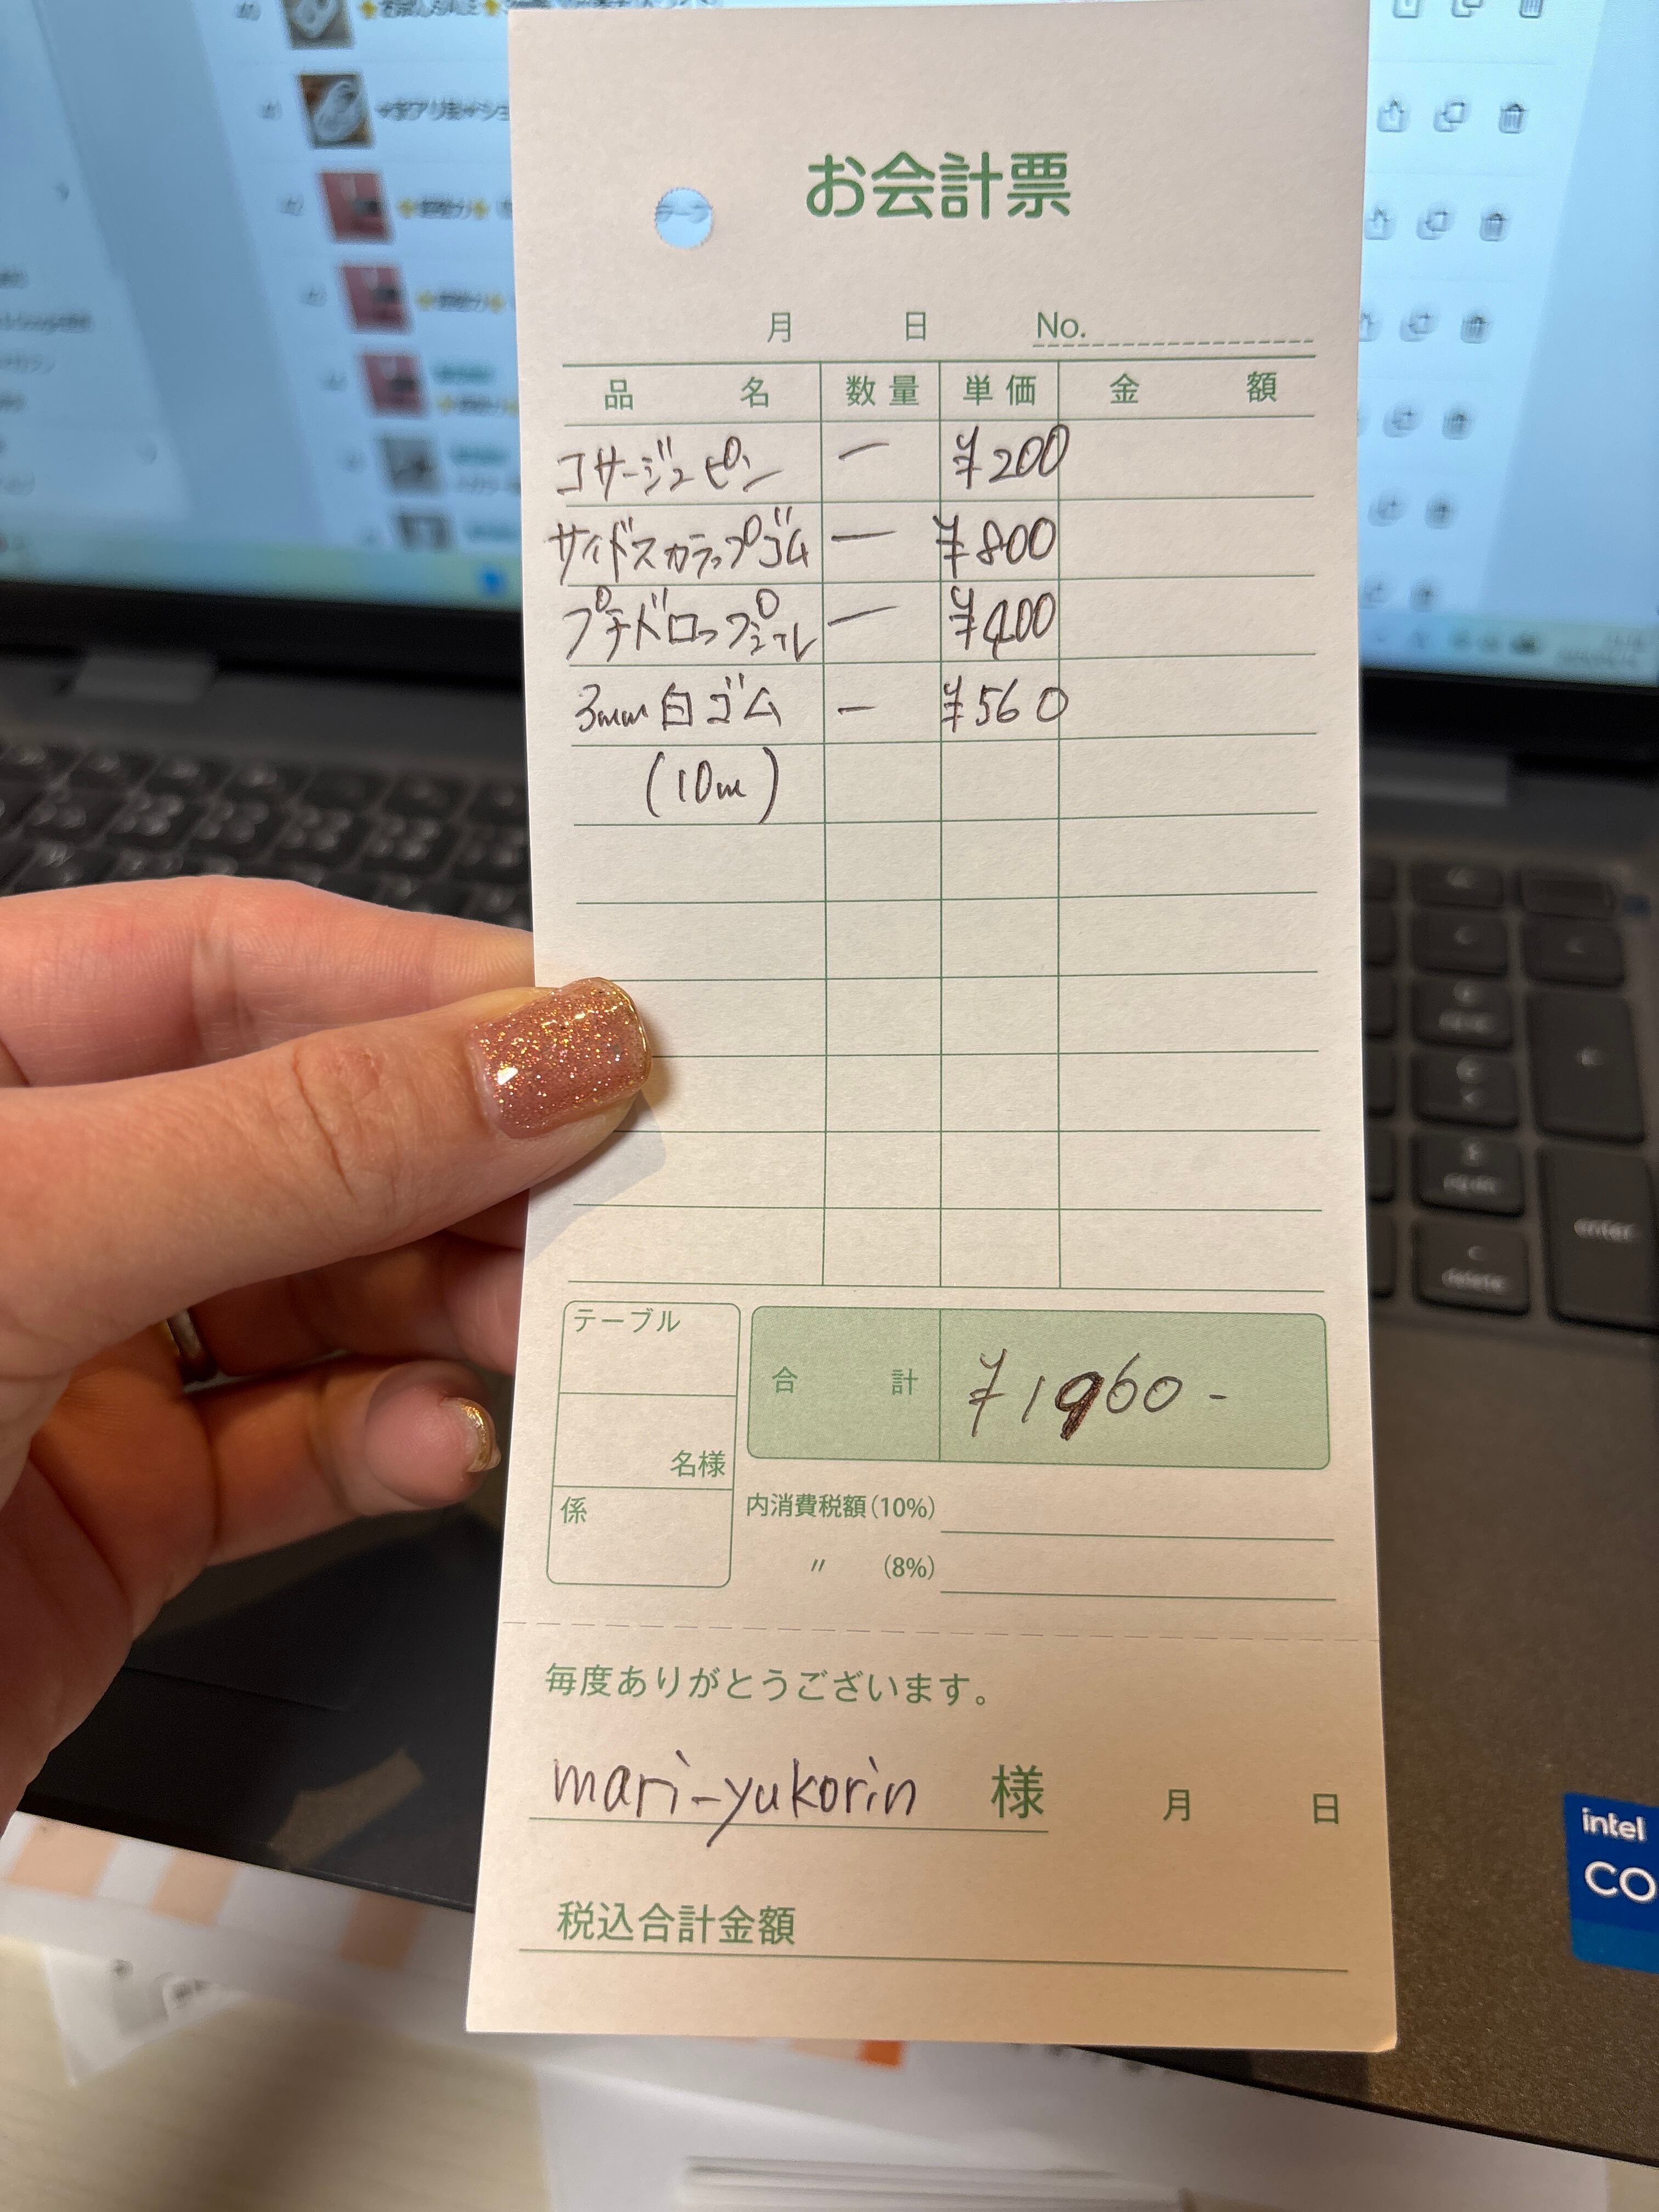 お会計票
月 日 No.
品名 数量 単価 金額
コサージュピン 一 ¥200
サイドスカラップゴム 一 ¥800
プチドロップミール 一 ¥400
3mm白ゴム 一 ¥560
(10m)
テーブル
名様
係
合計 ¥1960-
内消費税額(10%)
〃 (8%)
毎度ありがとうございます。
mari-yukorin 様 月 日
税込合計金額
intel
CO
enter
delete